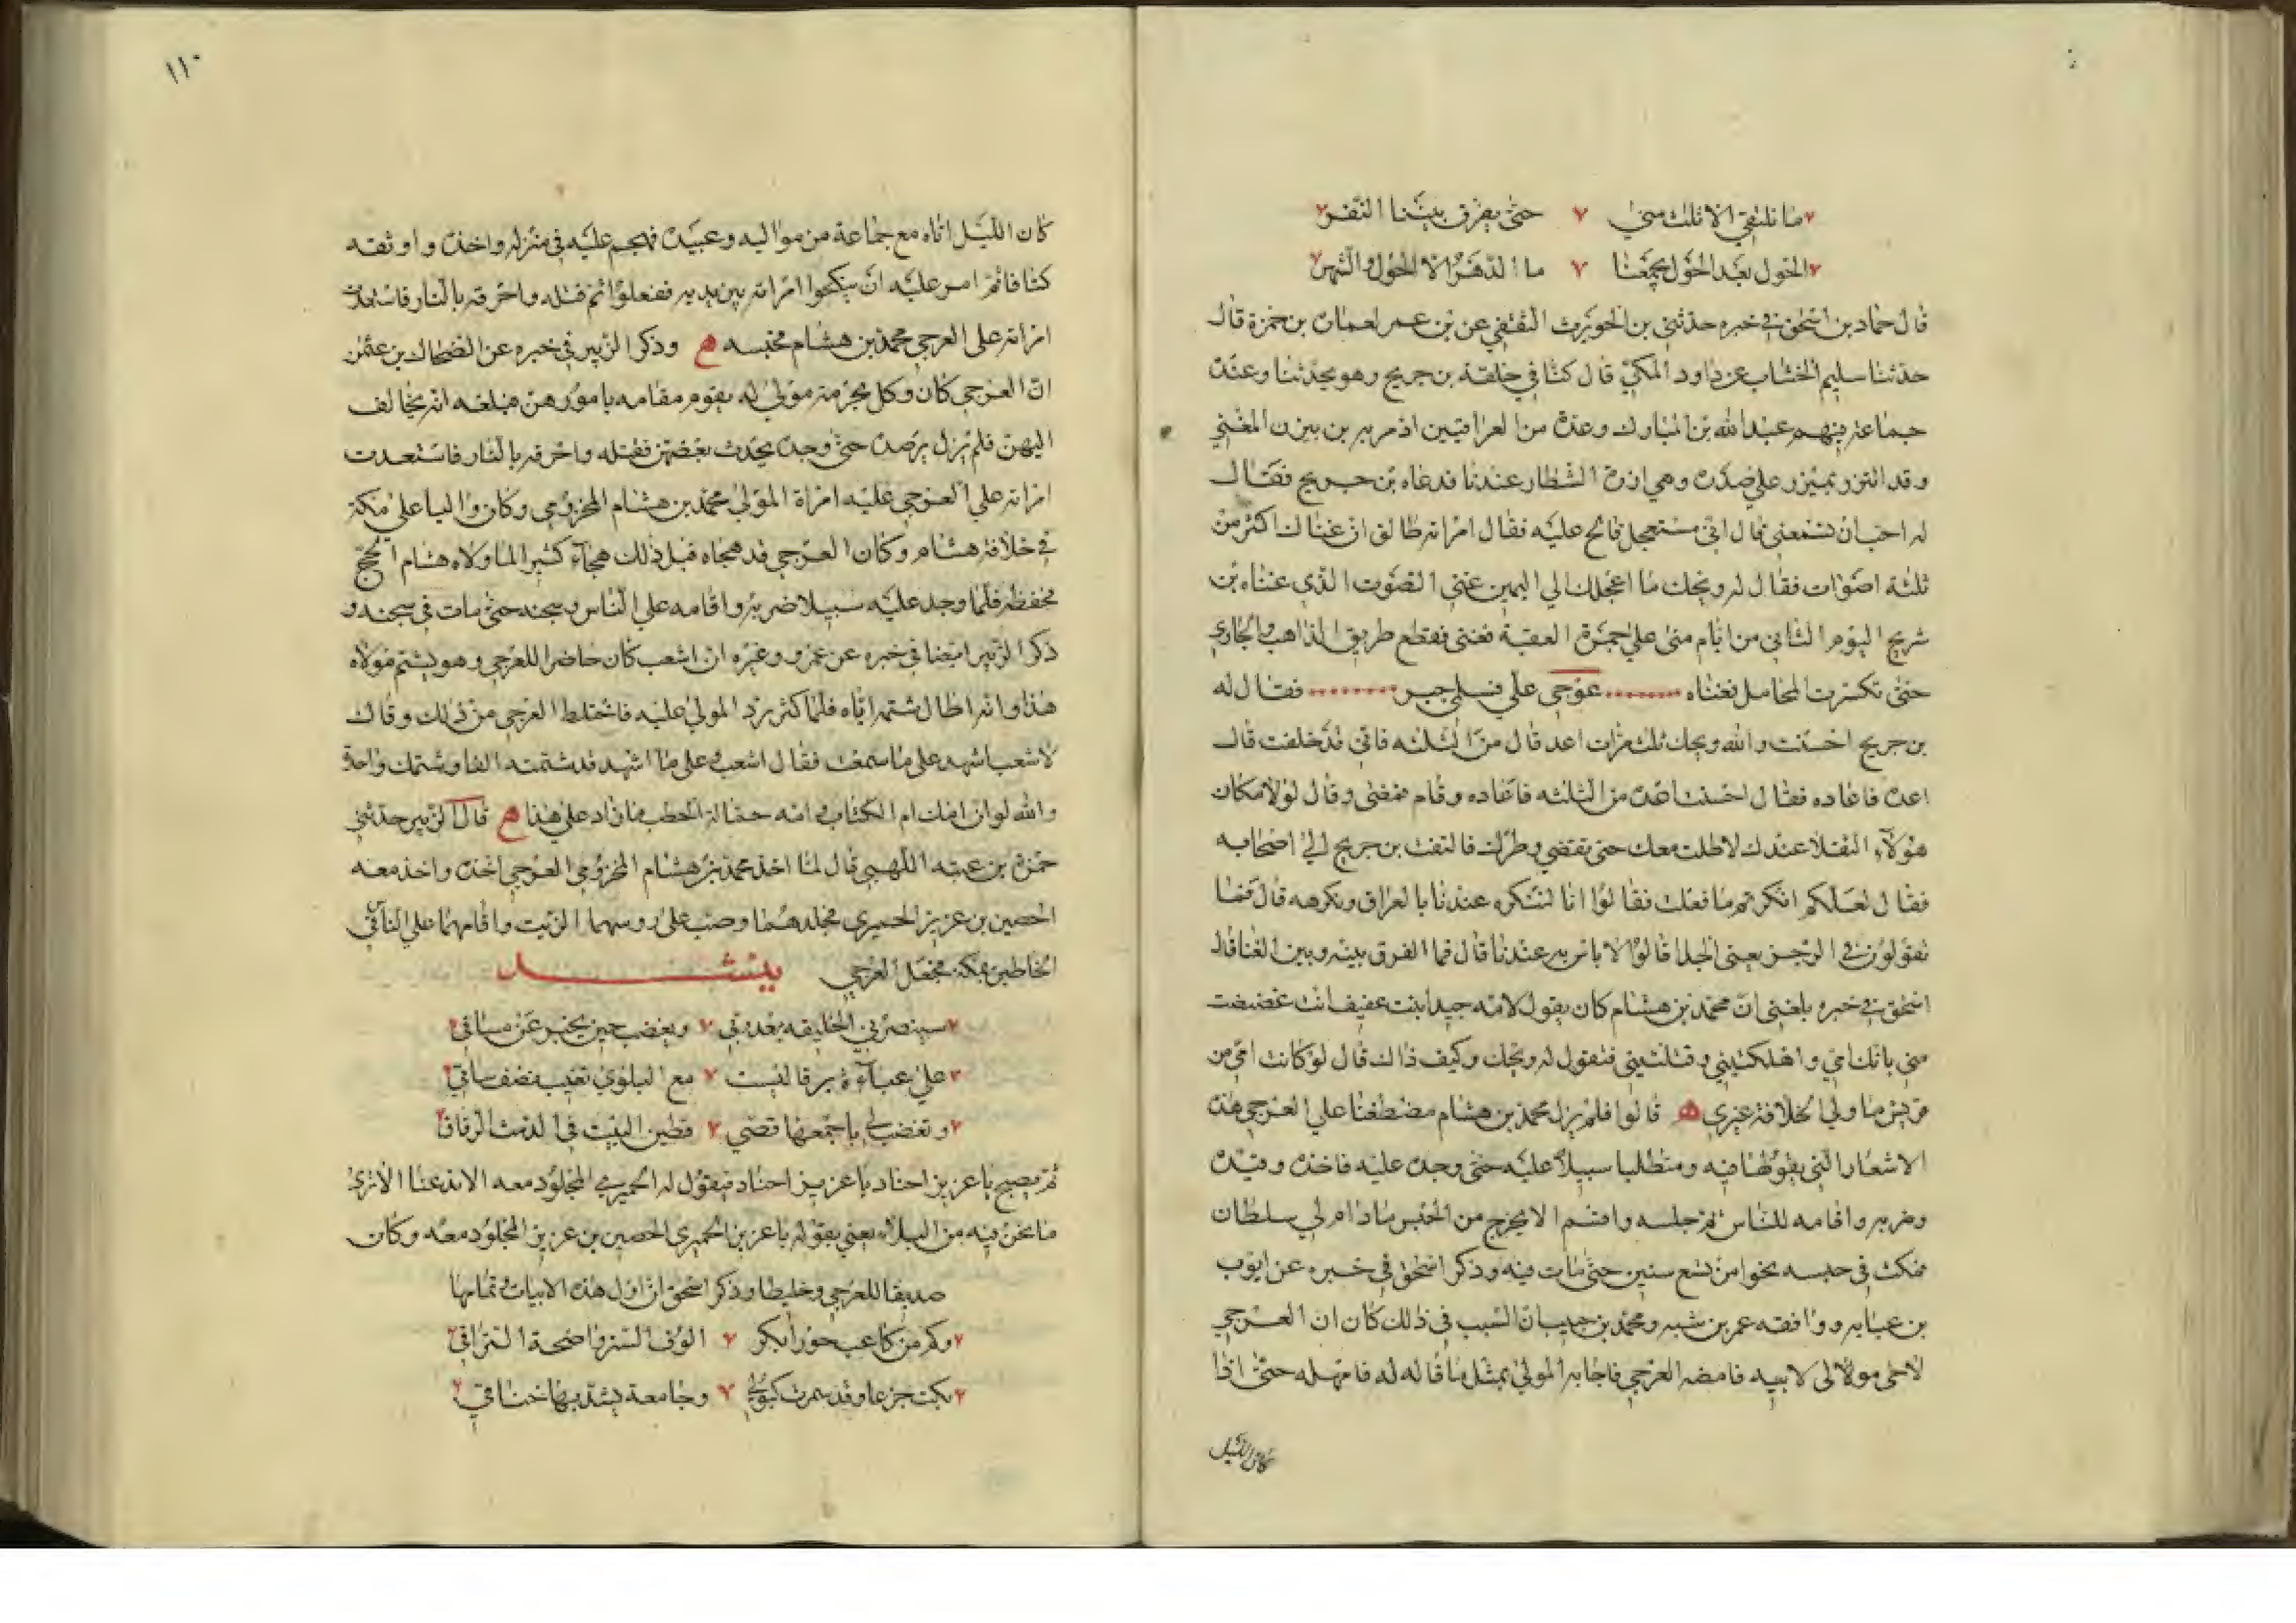 ما نلتقي الا ثلث منى حتى يفرق بيننا النفر
الحول بعد الحول يجمعنا ما الدهر الا الحول والشهر
قال حماد بن اسحق في خبره حدثني بن الحويرث الثقفي عن بن عمر لعمان بن حمزة قال
حدثنا سليم الخشاب عن داود المكي قال كنا في حلقة بن جريح وهو يحدثنا وعنده
جماعة فيهم عبد الله بن المبارك وعدة من العراقيين اذ مر به بن بيزن المغني
وقد ائتزر بميزر على صدره وهي ازرة الشطار عندنا فدعاه بن جريح فقال
له احب ان تسمعني قال اني مستعجل فالح عليه فقال امراته طالق ان غناك اكثر من
ثلثة اصوات فقال له ويحك ما اعجلك الي اليمين غنني الصوت الذي غناه بن
شريح اليوم الثاني من ايام منى على جمرة العقبة فغنى فقطع طريق الذاهب والجاوي
حتى تكسرت المحامل فغناه عوجي علي فسلمي جبر فقال له
بن جريح احسنت والله ويحك ثلث مرات اعد قال من الثلثه فاني قد حلفت قال
اعده فاعاده فقال احسنت اعده من الثلثه فاعاده وقام فمضى وقال لولا مكان
هولاء الثقلا عندك لاطلت معك حتى تقتضي وطرك فالتفت بن جريح الي اصحابه
فقال لعلكم انكرتم ما فعلت فقالوا انا لننكره عندنا بالعراق ونكرهه قال فما
تقولون في الرجز يعني الحدا قالوا لا باس به عندنا قال فما الفرق بينه وبين الغنا قال
اسحق في خبره بلغني ان محمد بن هشام كان يقول لامه جيدا بنت عفيف انت غضيضت
مني بانك امي واهلكتيني وقتلتيني فتقول له ويحك وكيف ذاك قال لو كانت امي من
قريش ما ولي الخلافة غيري ه قالوا فلم يزل محمد بن هشام مضطغنا علي العرجي هذه
الاشعار التي يقولها فيه ومتطلبا سبيلا عليه حتى وجده عليه فاخذه وقيده
وضربه واقامه للناس ثم حبسه واقسم الا يخرج من الحبس مادام لي سلطان
فمكث في حبسه نحوا من تسع سنين حتى مات فيه وذكر اسحق في خبره عن ايوب
بن عبايه ووافقه عمر بن شبه ومحمد بن حبيب ان السبب في ذلك كان ان العرجي
لاحى مولا لى لابيه فامضه العرجي فاجابه المولي بمثل ما قاله له فامهله حتى اذا
كان الليل
١١٠
كان الليل اتاه مع جماعة من مواليه وعبيده فهجم عليه في منزله واخذه واوثقه
كتافا ثم امر عليه ان ينكحوا امراته بين يديه ففعلوا ثم قتله واحرقه بالنار فاستعدت
امراته على العرجي محمد بن هشام فحبسه ه وذكر الزبير في خبره عن الضحاك بن عثمن
ان العرجي كان وكل بحرمته مولي له يقوم مقامه بامورهن فبلغه انه يخالف
اليهن فلم يزل يرصده حتى وجده يحدث بعضهن فقتله واحرقه بالنار فاستعدت
امراته علي العرجي عليه امراة المولي محمد بن هشام المخزومي وكان واليا على مكة
في خلافة هشام وكان العرجي قد هجاه قبل ذلك هجآء كثيرا لما ولاه هشام الحج
فحفظه فلما وجد عليه سبيلا ضربه واقامه علي الناس وسجنه حتى مات في سجنه و
ذكر الزبير ايضا في خبره عن عمرو وغيره ان اشعب كان حاضرا للعرجي وهو يشتم مولاه
هذا وانه اطال شتمه اياه فلما كثر رد المولي عليه فاختلط العرجي من ذلك وقال
لاشعب اشهد على ما سمعت فقال اشعب وعلى ما اشهد قد شتمته الفا وشتمك واحدة
والله لو ان امك ام الكتاب وامه حمالة الحطب ما زاد على هذا ه قال الزبير حدثني
حمزة بن عتبه اللهبي قال لما اخذ محمد بن هشام المخزومي العرجي اخذه واخذ معه
الحصين بن عزيز الحميري فجلدهما وصب على روسهما الزيت واقامهما علي الناس في
الخاطين بمكة فجعل العرجي ينشد
سينصرني الخليفه بعد ربي ويغضب حين يخبر عن مساقي
على عباءة برقا ليست مع البلوي تغيب نصف ساقي
وتغضب لي باجمعها قصي قطين البيت في الدمث الرقاق
ثم يصيح يا عزيز احناد يا عزيز احناد فيقول له الحميري المجلود معه الا تدعنا الا ترى
ما نحن فيه من البلاء يعني بقوله يا عزيز الحميري الحصين بن عزيز المجلود معه وكان
صديقا للعرجي وخليطا وذكر اسحق ان اول هذه الابيات وتمامها
وكم من كاعب حورا بكر الوف الستر واضحة التراقي
بكت جزعا وقد سمرت كبولي وجامعة يشد بها خناقي